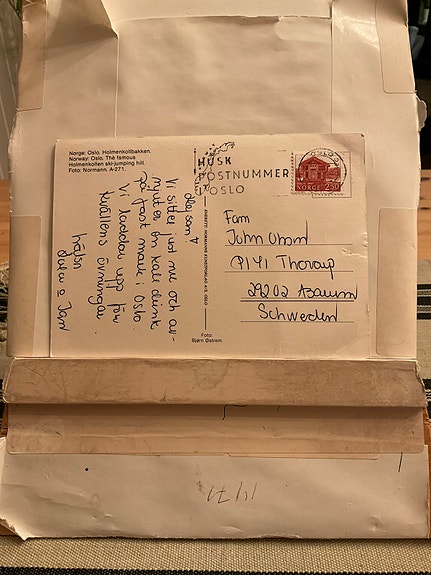 Norge: Oslo. Holmenkollbakken.
Norway: Oslo. The famous
Holmenkollen ski-jumping hill.
Foto: Normann. A-271.
Hejsan!
Vi sitter just nu och av-
njuter en kall drink
på fast mark i Oslo.
Vi laddar upp för
kvällens övningar.
hälsn
o Jan
HUSK
POSTNUMMER
OSLO
OSLO
NORGE 2.50
Fam
John
Thorup
29202
Schweden
Foto:
Bjørn Østrem